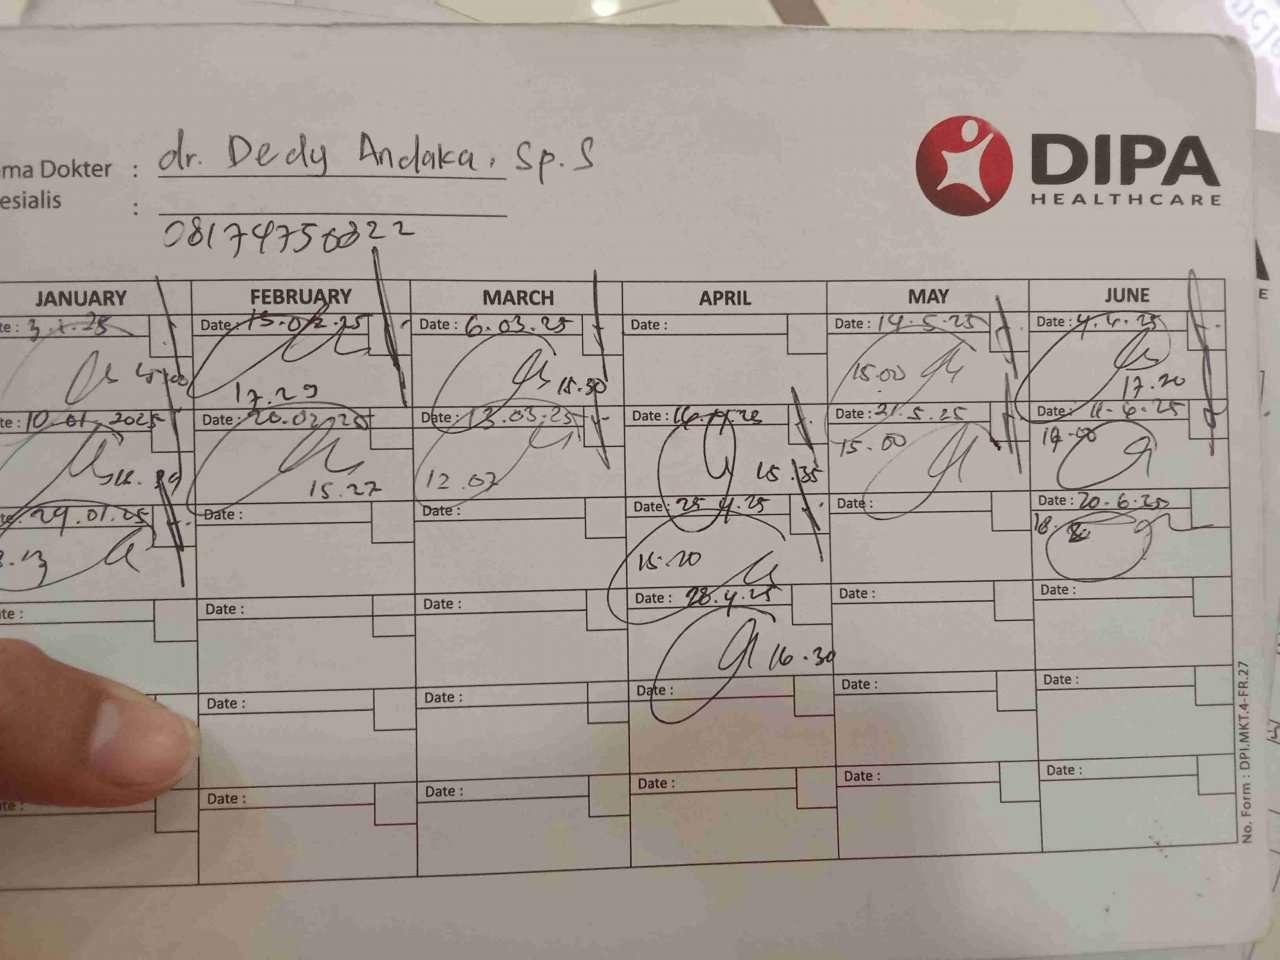 ma Dokter : dr. Dedy Andaka, Sp.S
esialis :
DIPA
HEALTHCARE
JANUARY FEBRUARY MARCH APRIL MAY JUNE
te : 3.1.25 Date : 15.02.25 Date : 6.03.25 Date : Date : 14.5.25 Date :
17.29 15.30 15.00 17.20
te : 10.01.2025 Date : 20.02.25 Date : 13.03.25 Date : Date : 21.5.25 Date : 11-6-25
15.27 12.07 15.35 15.00
te : 29.01.25 Date : Date : Date : 25.4.25 Date : Date : 20.6.25
15.20
te : Date : Date : Date : 28.4.25 Date : Date :
16.30
Date : Date : Date : Date : Date :
te : Date : Date : Date : Date : Date :
No. Form : DPI.MKT.4-FR.27